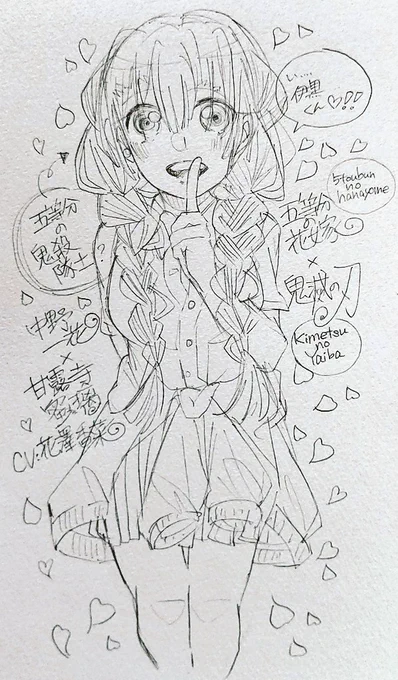 い……
伊黒
くん♡!!
5toubun
no
hanayome
五等分
の
花嫁
×
鬼滅の刃
Kimetsu
no
Yaiba
五等分
の
鬼殺
隊士
中野
一花
×
甘露寺
蜜璃
CV:花澤香菜